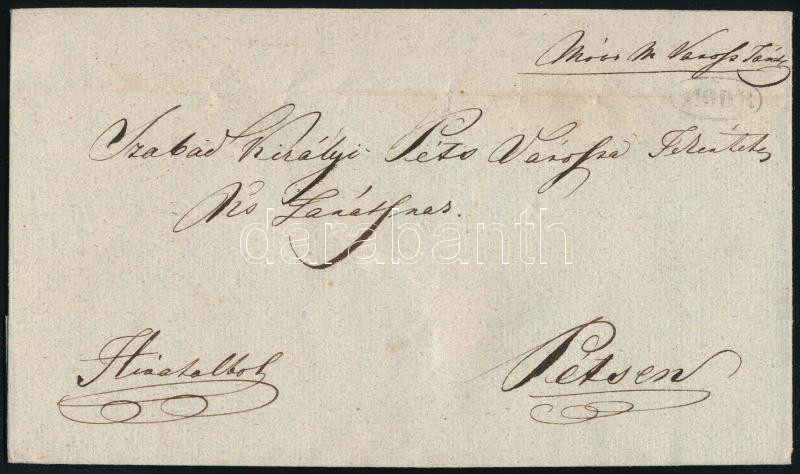 Móor M Város Tanácsa
MOOR
Szabad Királyi Péts Várossa Tekéntetes
Ns Tanátsnak.
darabanth
Hivatalbol
Pétsen